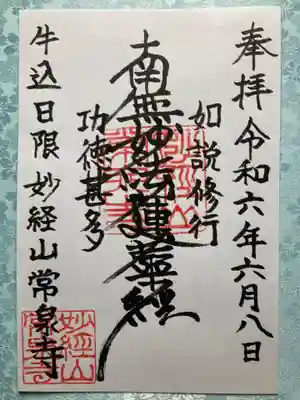 奉拝令和六年六月八日
如説修行
南無妙法蓮華経
功徳甚多
牛込日限妙経山常泉寺
妙経山
常泉寺